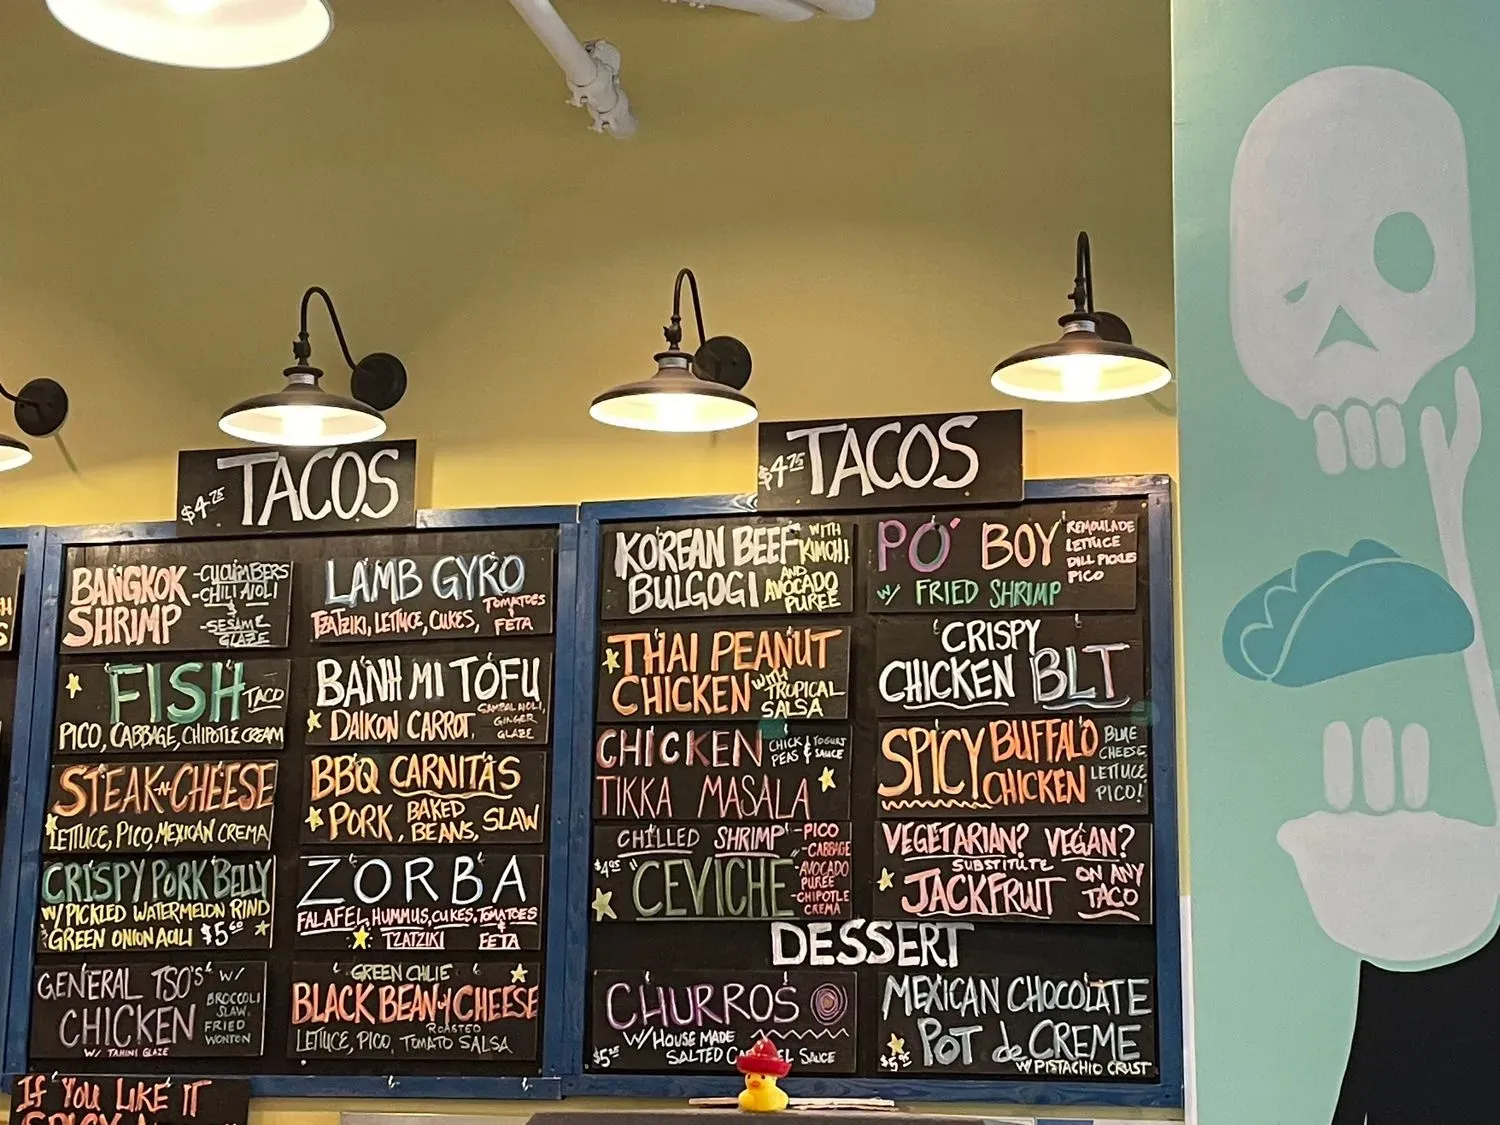 $4.75 TACOS
BANGKOK
SHRIMP
-CUCUMBERS
-CHILI AIOLI
&
-SESAME
GLAZE
FISH TACO
PICO, CABBAGE, CHIPOTLE CREAM
STEAK-N-CHEESE
LETTUCE, PICO, MEXICAN CREMA
CRISPY PORK BELLY
W/ PICKLED WATERMELON RIND
GREEN ONION AOILI $5.60
GENERAL TSO'S W/
CHICKEN
BROCCOLI
SLAW,
FRIED
WONTON
W/ TAHINI GLAZE
LAMB GYRO
TZATZIKI, LETTUCE, CUKES,
TOMATOES
&
FETA
BANH MI TOFU
DAIKON CARROT,
SAMBAL AIOLI,
GINGER
GLAZE
BBQ CARNITAS
PORK, BAKED
BEANS, SLAW
ZORBA
FALAFEL, HUMMUS, CUKES, TOMATOES
TZATZIKI & FETA
GREEN CHLIE
BLACK BEAN & CHEESE
LETTUCE, PICO, ROASTED
TOMATO SALSA
IF YOU LIKE IT
$4.75 TACOS
KOREAN BEEF
BULGOGI
WITH
KIMCHI
AND
AVOCADO
PUREE
THAI PEANUT
CHICKEN WITH TROPICAL
SALSA
CHICKEN
CHICK
PEAS & YOGURT
SAUCE
TIKKA MASALA
CHILLED SHRIMP
"CEVICHE"
-PICO
-CABBAGE
-AVOCADO
PUREE
-CHIPOTLE
CREMA
PO' BOY
W/ FRIED SHRIMP
REMOULADE
LETTUCE
DILL PICKLES
PICO
CRISPY
CHICKEN BLT
SPICY BUFFALO
CHICKEN
BLUE
CHEESE,
LETTUCE,
PICO!
VEGETARIAN? VEGAN?
SUBSTITUTE
JACKFRUIT
ON ANY
TACO
DESSERT
CHURROS
W/ HOUSE MADE
SALTED CARAMEL SAUCE
MEXICAN CHOCOLATE
POT de CREME
W/ PISTACHIO CRUST